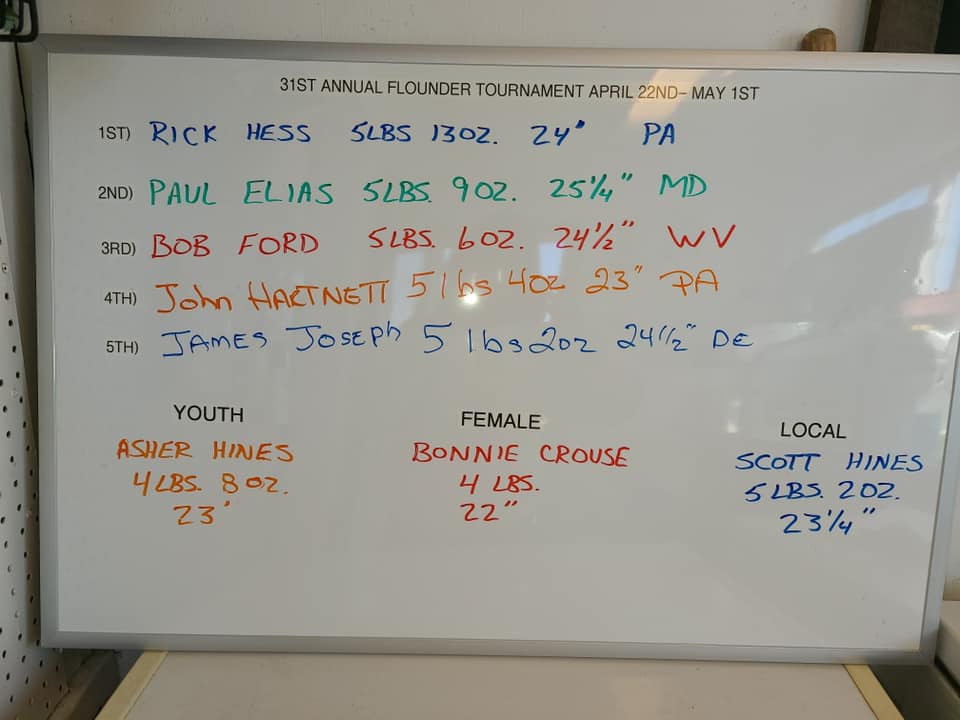 31ST ANNUAL FLOUNDER TOURNAMENT APRIL 22ND– MAY 1ST
1ST) RICK HESS 5LBS 13OZ. 24" PA
2ND) PAUL ELIAS 5LBS. 9OZ. 25 1/4" MD
3RD) BOB FORD 5LBS. 6OZ. 24 1/2" WV
4TH) John HARTNETT 5 lbs 4oz 23" PA
5TH) JAMES JOSEPh 5 lbs 2oz 24 1/2" DE
YOUTH FEMALE LOCAL
ASHER HINES BONNIE CROUSE SCOTT HINES
4 LBS. 8 OZ. 4 LBS. 5 LBS. 2 OZ.
23" 22" 23 1/4"